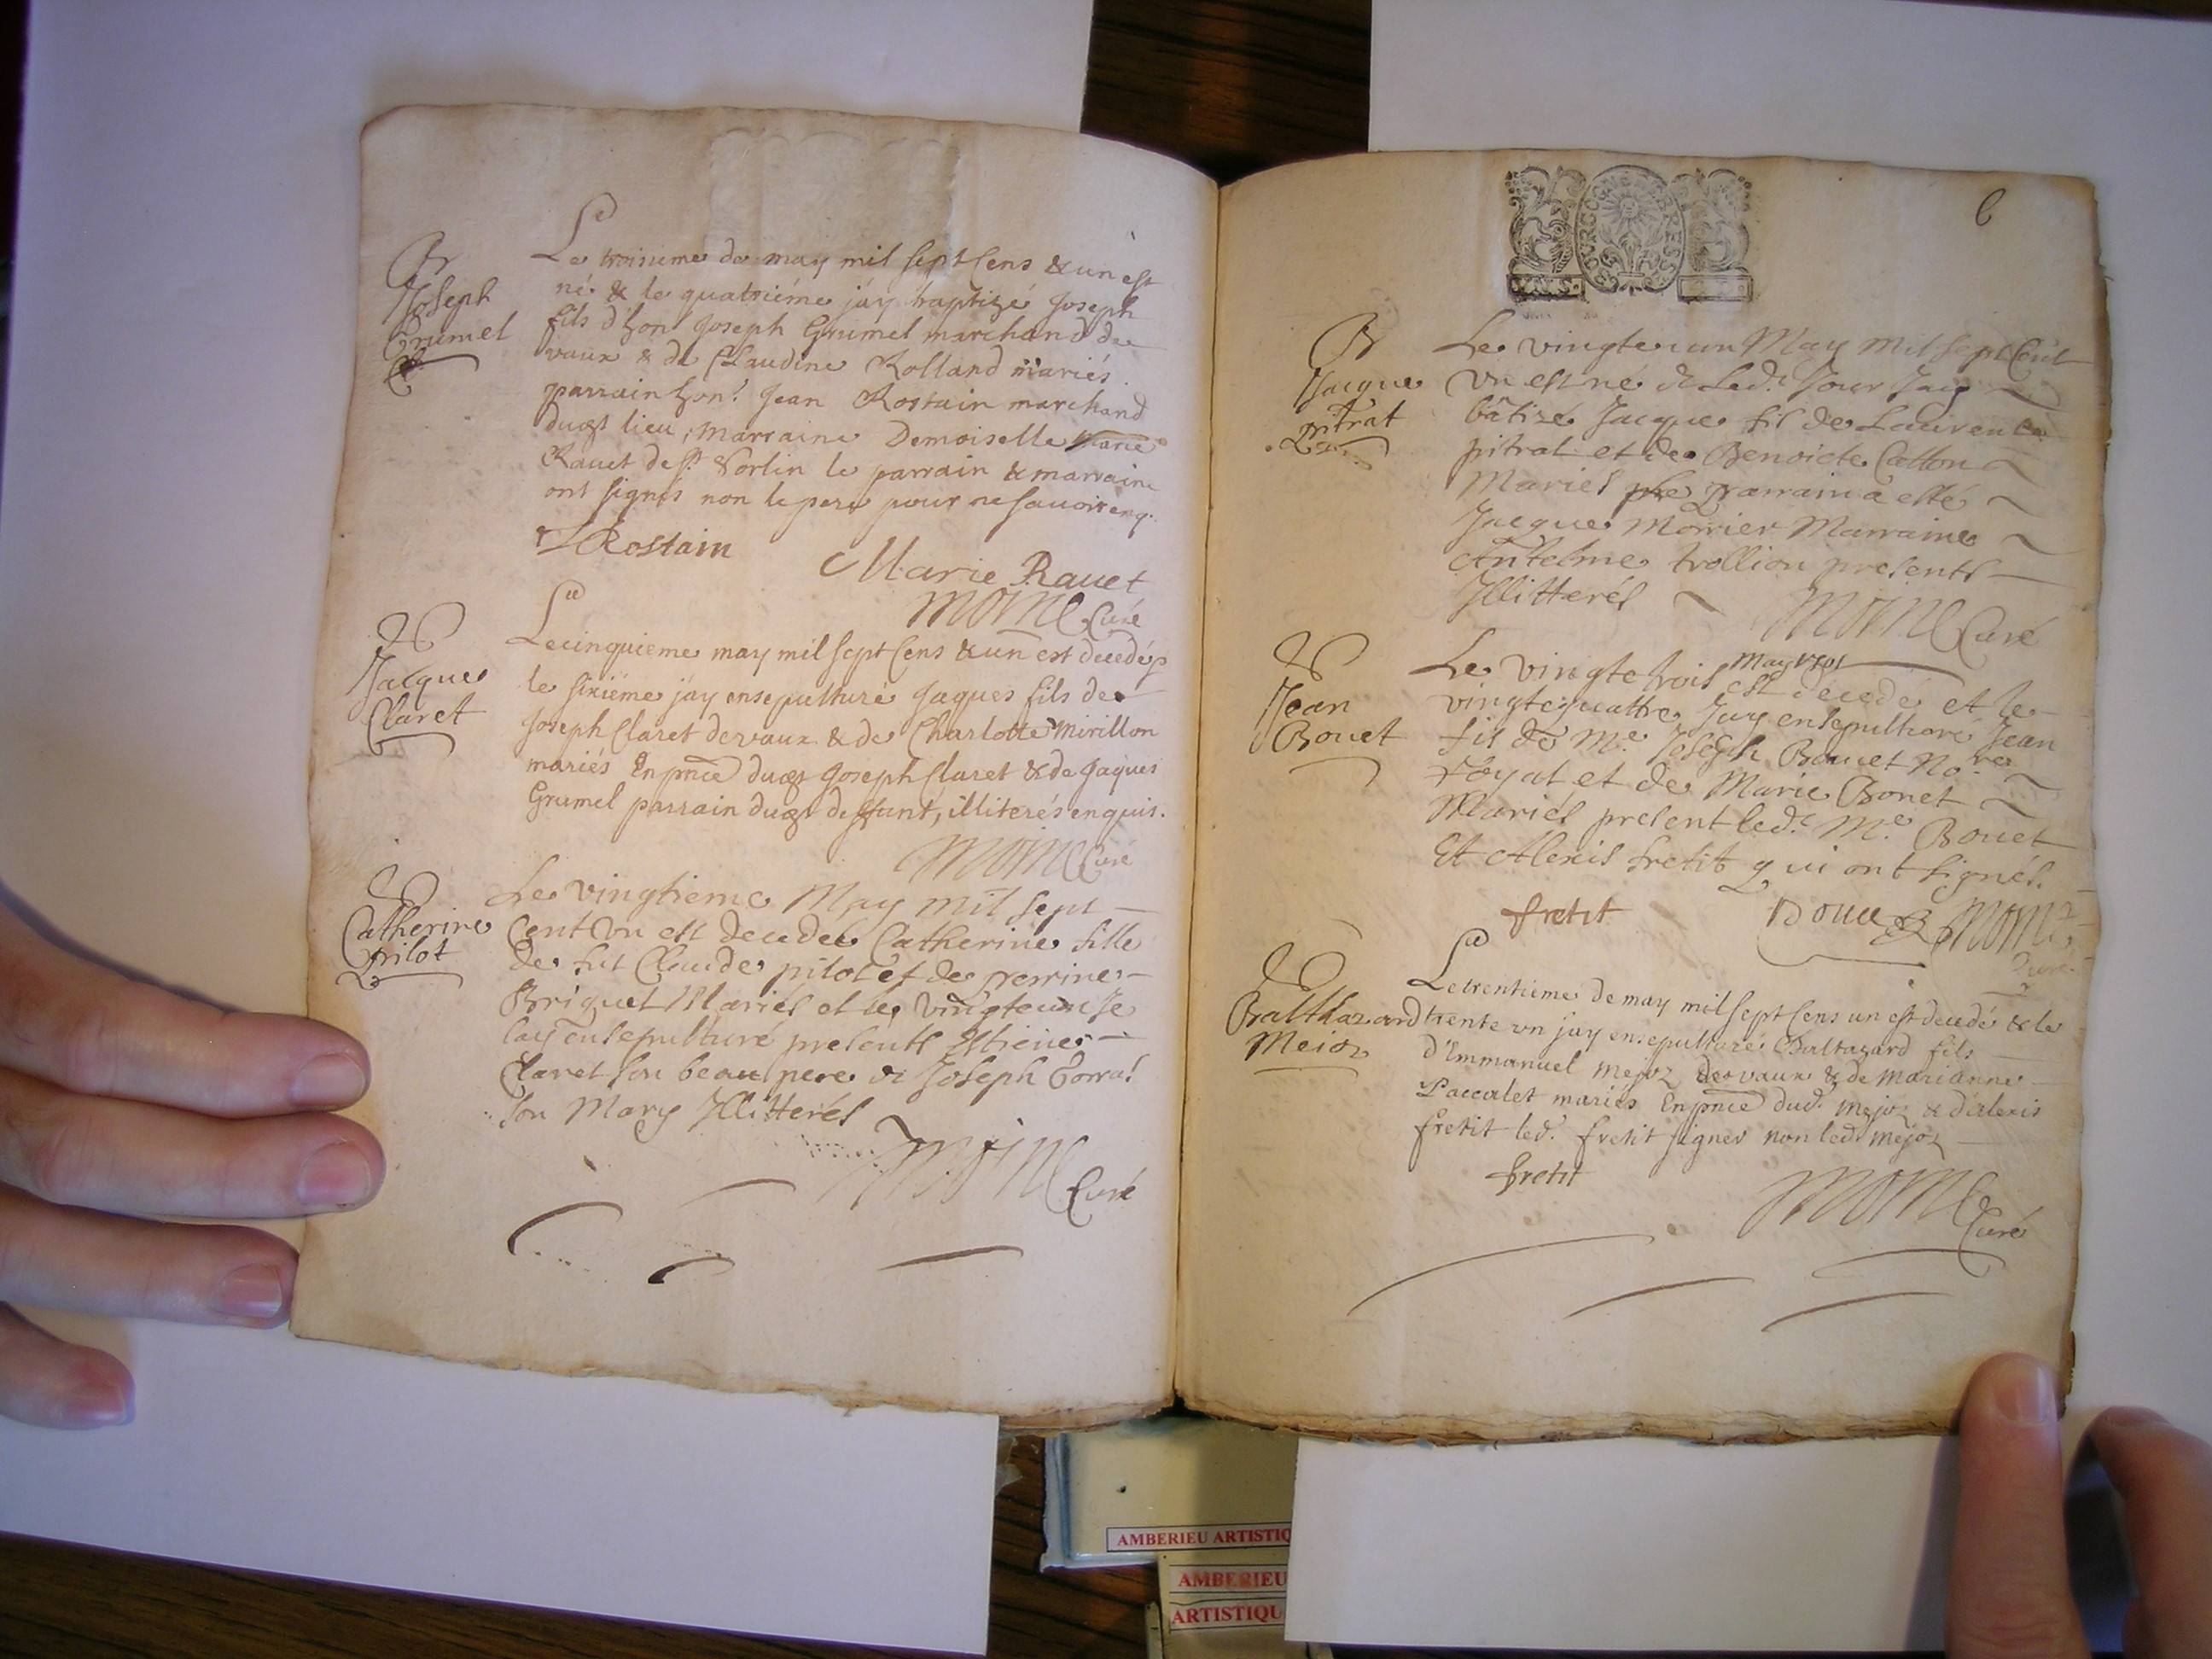 B
Joseph
Grumel
Le troisieme de may mil sept cens & un est
né & le quatriéme j'ay baptizé Joseph
fils d'hon! Joseph Grumel marchand de
vaux & de Claudine Rolland mariés.
parrain hon! Jean Rostain marchand
dudt lieu, marraine Demoiselle Marie
Rauet de St. Sorlin le parrain & marraine
ont signés non le pere pour ne sauoir enq.
Rostain
Marie Rauet
moine Curé
Jacque
Claret
Le cinquieme may mil sept cens & un est decedé &
le sixiéme j'ay ensepulturé Jaques fils de
Joseph Claret de vaux & de Charlotte Mirillon
mariés En pnce dudt Joseph Claret & de Jaques
Grumel parrain dudt deffunt, illiterés enquis.
moine Curé
Catherine
pilot
Le vingtieme May mil sept
Cent Vn est decedée Catherine fille
de fut Claude pilot et de perrine
Briguet Mariés et le vingteun Je
lay ensepulturé presents Estiene
Claret son beau pere & Joseph
son Mary Jllitterés
moine Curé
BOURG BRESSE
B
Jacque
pitrat
Le vingteun May Mil Sept Cent
Vn est né & Led.t Jour Jay
bâtizé Jacque fil de Laurent
pitrat et de Benoicte Catton
Mariés parrain a esté
Jacque Morrier Marraine
Antelme trollion presents
Jllitterés
moine Curé
Jean
Bouet
may 1701
Le vingtetrois est decedé et le
vingtequattre Jay ensepulturé Jean
fil de M.e Joseph Bouet No.re
royal et de Marie Bonet
Mariés present led.t M.e Bouet
Et Alexis fretit qui ont signés.
fretit
Bouet
moine
Curé
Balthazard
Meioz
Le trentieme de may mil sept cens un est decedé & le
trente vn j'ay ensepulturé Baltazard fils
d'Emmanuel mejoz de vaux & de marianne
Paccalet mariés En pnce dud. mejoz & d'alexis
fretit led. fretit signer non led. mejoz
fretit
moine
Curé
AMBERIEU ARTISTIQ
AMBERIEU
ARTISTIQU